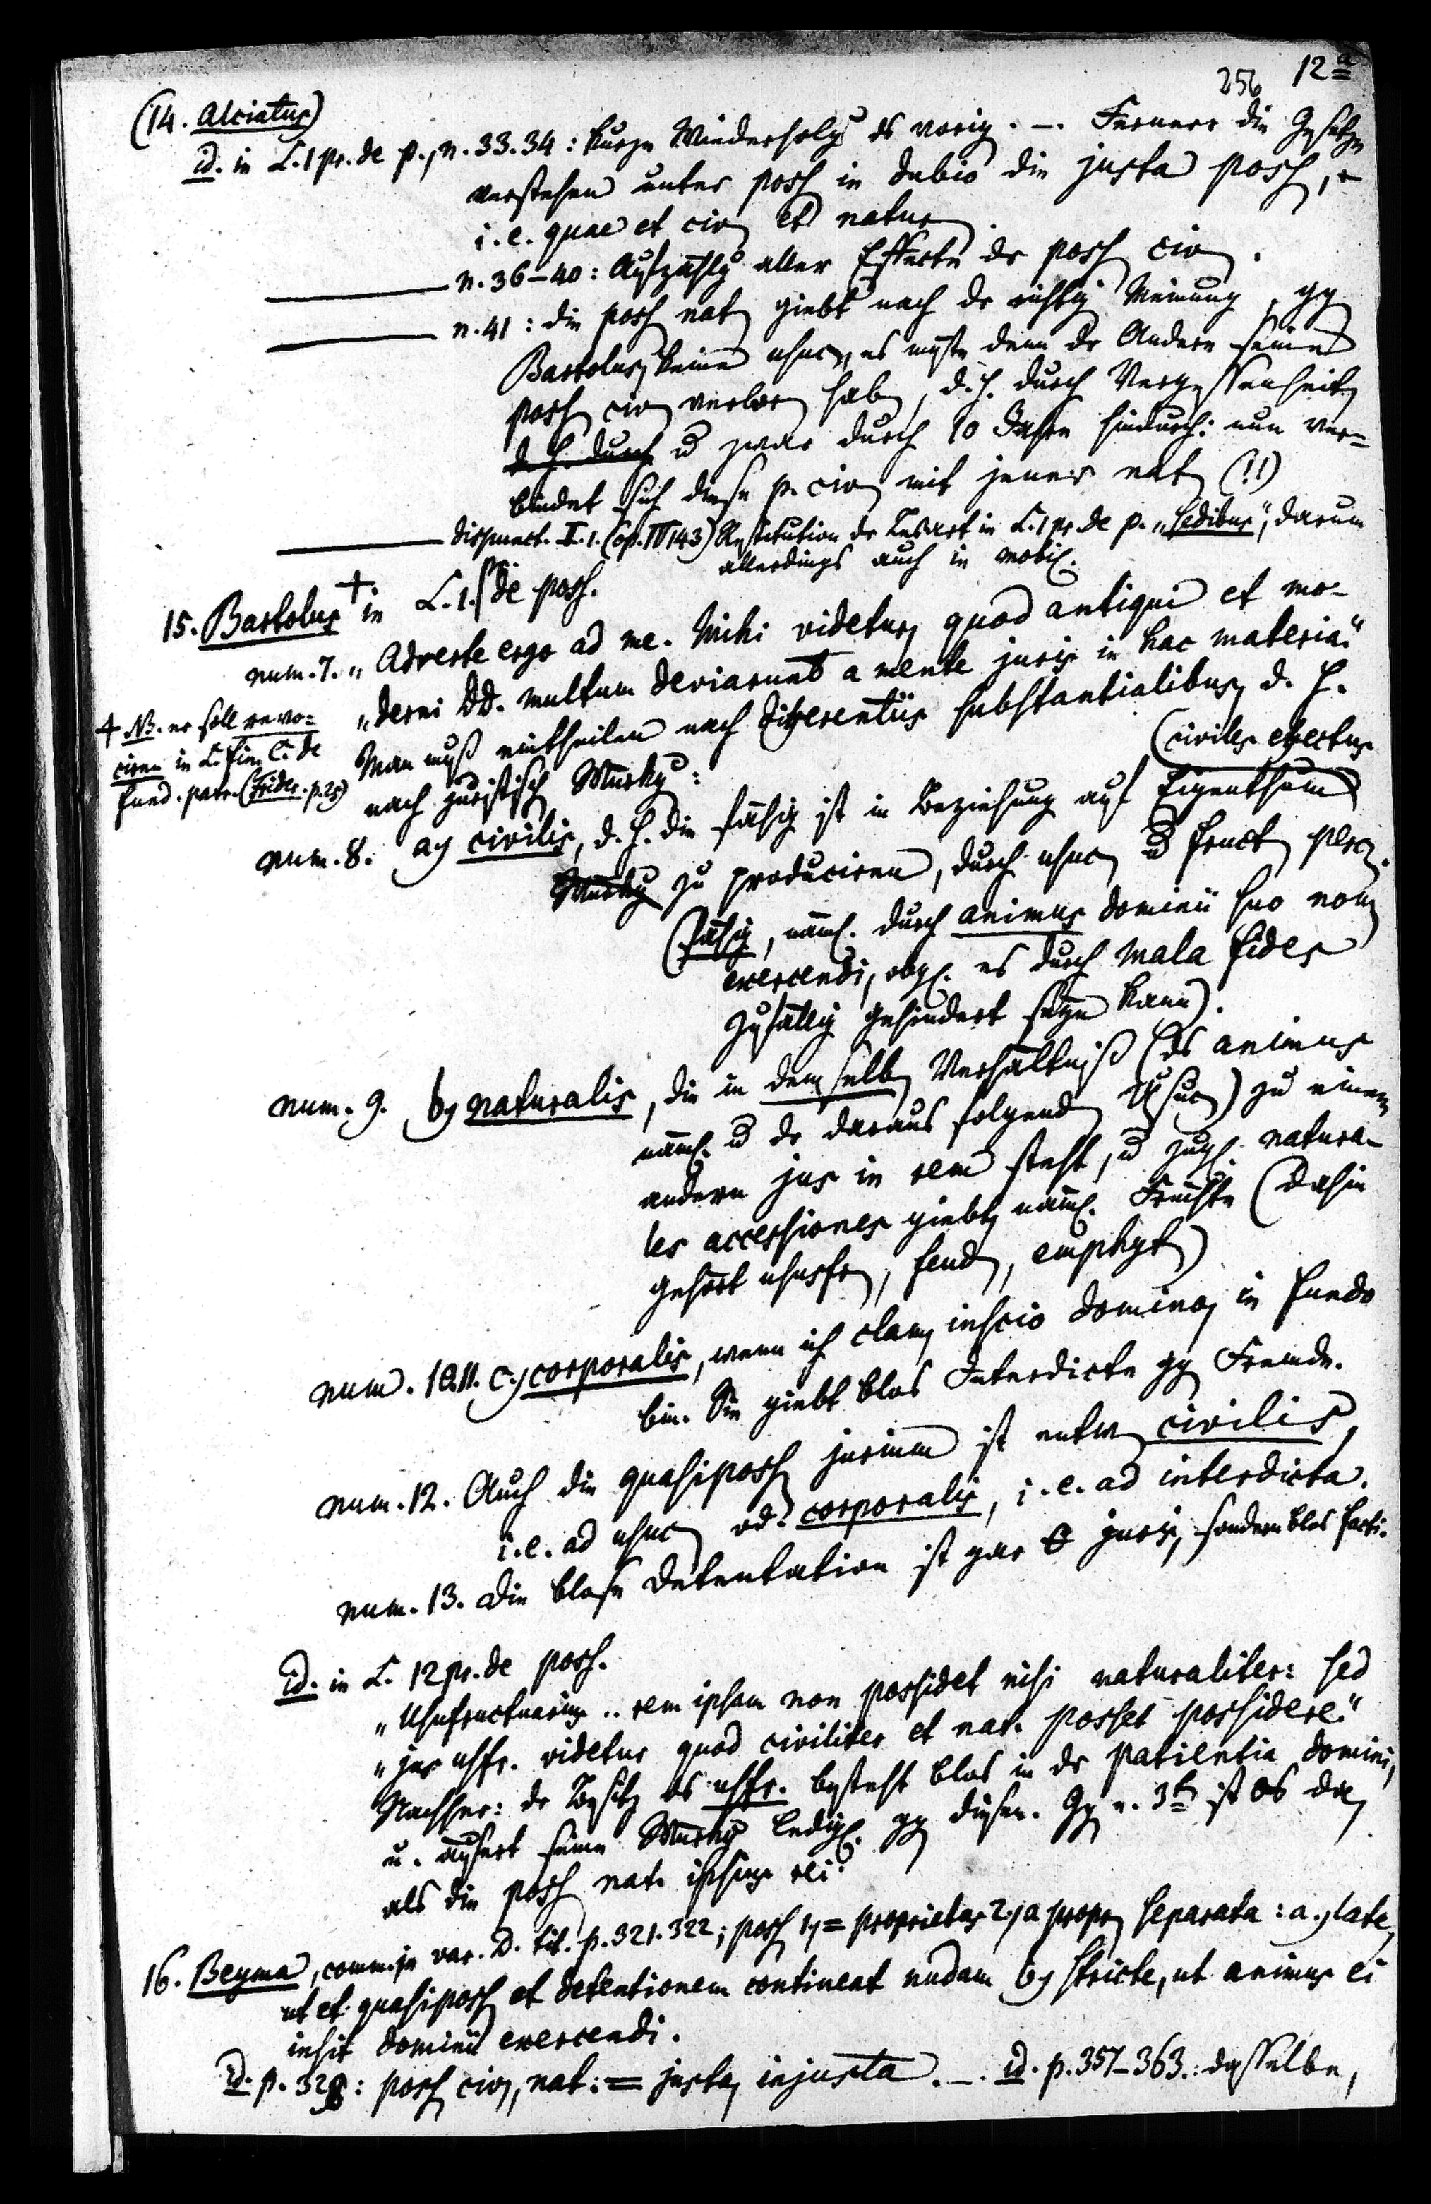 256 12a
(14. Alciatus)
id. in L. 1 pr. de p., n. 33. 34: kurze Wiederholg ds vorig. —. Ferner die Gesetze
verstehen unter poss in dubio die justa poss,
i. e. quae et civ et natur.
——— n. 36–40: Aufzählg aller Effecte dr poss civ.
——— n. 41: die poss nat giebt nach dr richtig Meinung, gg
Bartolus, keine usuc, es müßte denn dr Andere seine
poss civ verloren hab, d. h. durch Vergessenheit,
d. h. durch u zwar durch 10 Jahre hindurch: nun ver=
bindet sich diese p. civ mit jener nat (!!)
——— dispunct. II. 1. (op. IV 143) Restitution dr Lesart in L. 1 pr. de p. „sedibus", darum
allerdings auch in mobil.
15. Bartolus + in L. 1. pr. de poss.
num. 7. „Adverte ergo ad me. Mihi videtur, quod antiqui et mo-
„derni DD. multum deviarunt a mente juris in hac materia."
Man muß eintheilen nach differentiis substantialibus, d. h.
nach juristisch Wirkg:
+ NB. er soll revo=
ciren in L. fin. C. de
fund. patr. (Frider. p. 25)
(civiles effectus
num. 8. a) civilis, d. h. die fähig ist in Beziehung auf Eigenthum
Wirkg zu produciren, durch usuc u fruct perc.
(fähig, näml. durch animus dominii suo nom
exercendi, obgl. es durch mala fides
zufällig gehindert seyn kann).
num. 9. b) naturalis, die in demselb Verhältniß (ds animus
näml. u dr daraus folgend Usuc) zu einem
andern jus in rem steht, u zugl. natura-
les accessiones giebt, näml. Früchte (dahin
gehört ususfr, feud, emphyt)
num. 10. 11. c) corporalis, wenn ich clam, inscio domino, in fundo
bin. Sie giebt blos Interdicte gg Fremde.
num. 12. Auch die quasiposs jurium ist entw civilis,
i. e. ad usuc od. corporalis, i. e. ad interdicta.
num. 13. Die bloße Detentation ist gar 0 juris, sondern blos facti.
id. in L. 12 pr. de poss.
„Usufructuarius .. rem ipsam non possidet nisi naturaliter: sed
„jus usfr. videtur quod civiliter et nat. posset possidere."
Nachher: dr Besitz ds usfr. besteht blos in dr patientia domini,
u. äußert seine Wirkg ledigl. gg diesen. Gg e. 3t ist 0s da,
als die poss nat. ipsius rei.
16. Beyma, comm. in var. D. tit. p. 321. 322; poss 1) = proprietas 2) a propr separata: a) late,
ut et quasiposs et detentionem contineat nudam b) stricte, ut animus ei
insit dominii exercendi.
id. p. 328: poss civ, nat: = justa, injusta. —. id. p. 357–363.: dasselbe,